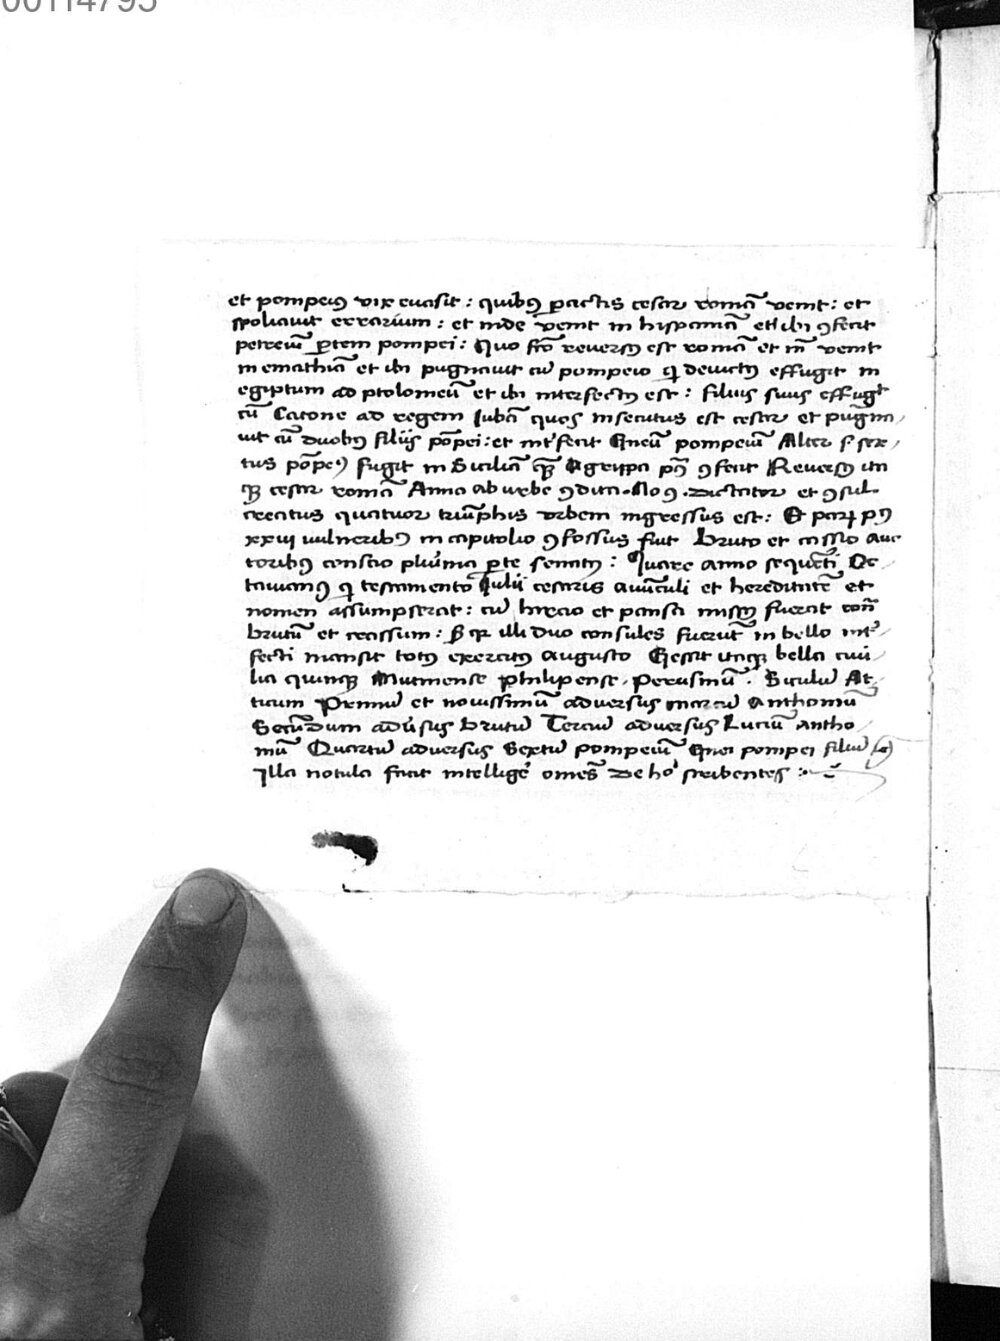 00114795
et pompeiꝰ vix euasit : quibꝰ ꝑactis cesar romā venit : et
spoliauit erarium : et inde venit in hispaniā et ibi ꝯfecit
petreiū ꝑtem pompei : Quo fc̄o reuersꝰ est romā et in venit
in emathiā et ibi pugnauit cū pompeio qi deuictꝰ effugit in
egiptum ad ptolomeū et ibi interfectꝰ est : filius suus effugit
cū Catone ad regem Iubā quos insecutus est cesar et pugna
uit cū duobꝰ filijs pōpei : et int'fecit Gneū pompeiū Alter s ser
tus pōpeiꝰ fugit in Siciliā quē Agrippa pꝰ ꝯfecit Reuersꝰ ita
qꝫ cesar romā Anno ab vrbe ꝯdita Dictator et ꝯsul
creatus quatuor triūphis vrbem ingressus est : Et pꝰ
xxiij vulneribꝰ in capitolio ꝯfossus fuit Bruto et cassio auc
toribꝰ conscio plurima ꝑte senatꝰ : Quare anno sequēti Oc
tauianꝰ qi testamento Iulii cesaris auūculi et hereditatē et
nomen assumpserat : cū hircio et pansa missꝰ fuerat cont̄
brutū et cassium : Sꝫ qꝫ illi duo consules fuerūt in bello int'
fecti mansit totꝰ exercitꝰ augusto Gessit itaqꝫ bella ciui
lia quinqꝫ Mutinense philipense . perusinū . Siculū At
ticum Primū et nouissimū aduersus marcū Anthoniū
Secūdum adūsus brutū Terciū aduersus Luciū antho
niū Quartū aduersus Sextū pompeiū Gnei pompei filiū
Illa notula facit intellige' omēs de ho' scribentes :